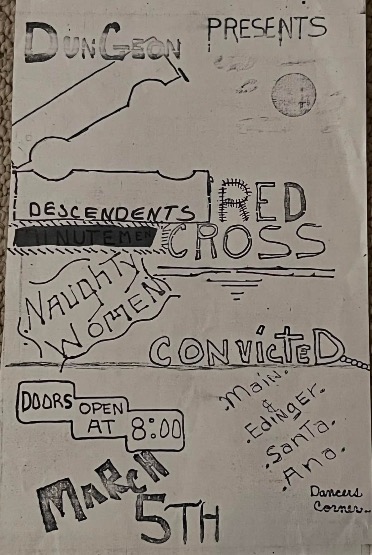 DUNGEON PRESENTS
DESCENDENTS
MINUTEMEN
RED
CROSS
NAUGHTY
WOMEN
CONVICTED
DOORS OPEN
AT 8:00
MARCH
5TH
Main
&
Edinger
Santa
Ana
Dancers
Corner